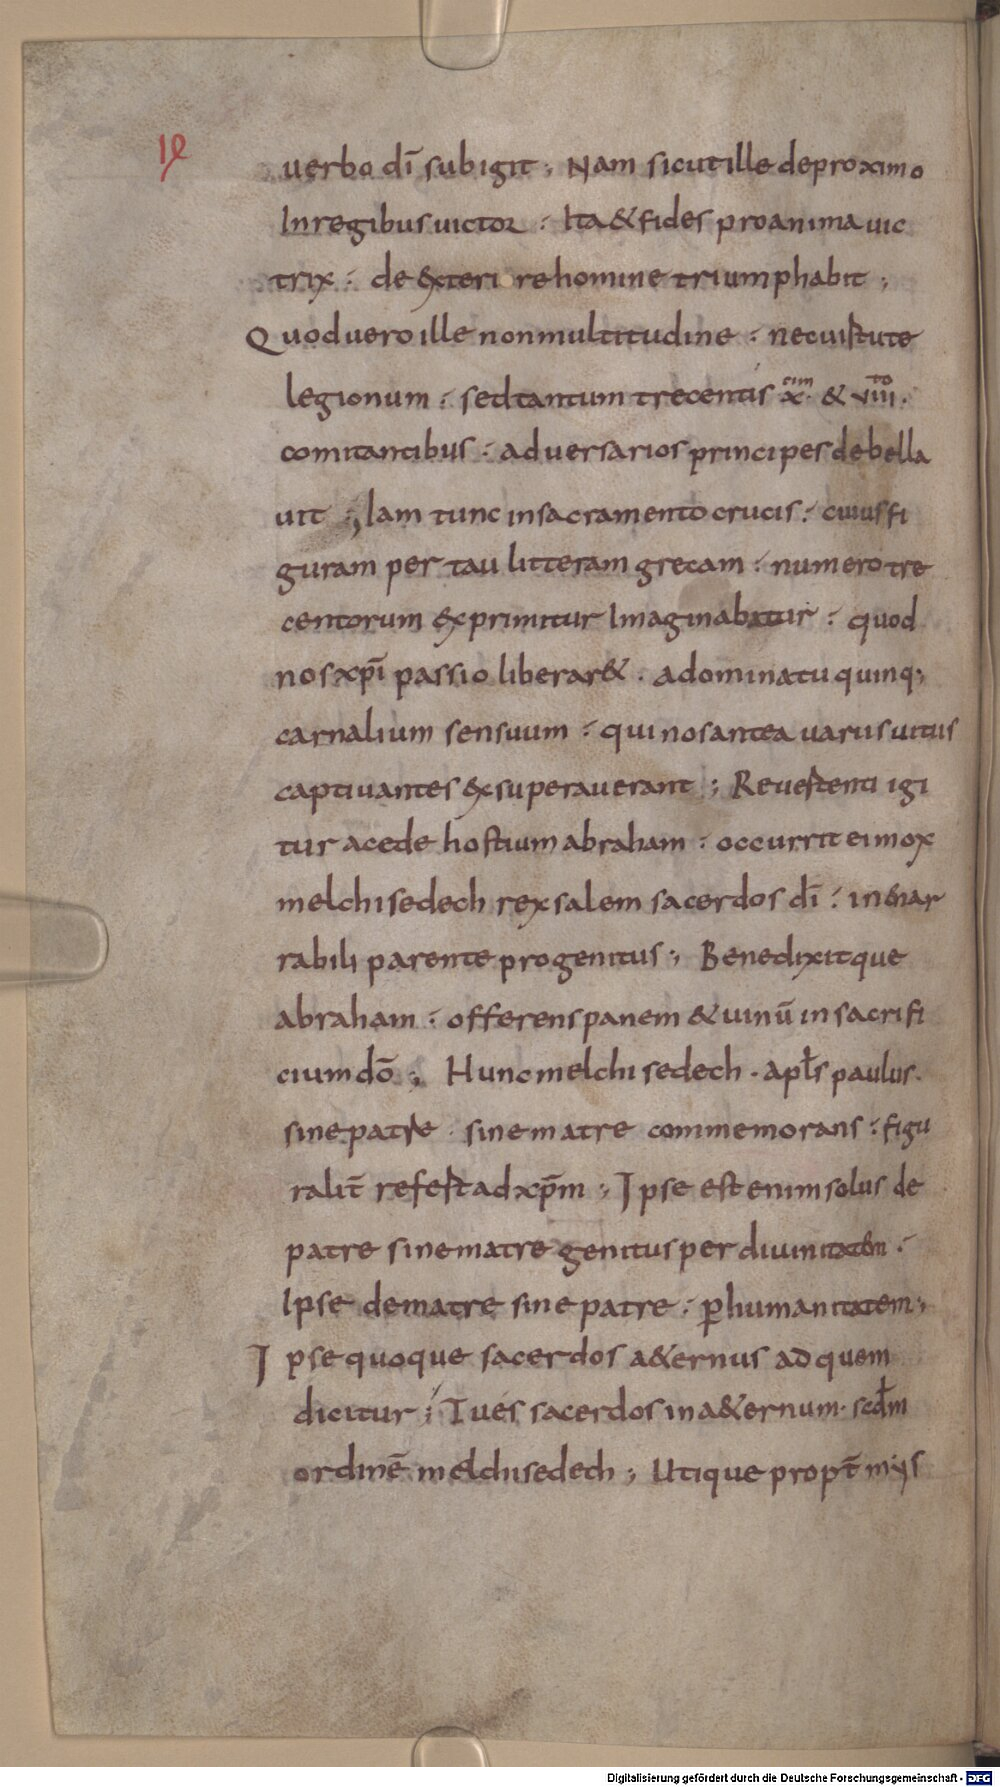 uerbo dī subigit ; Nam sicut ille de proximo
In regibus uictor : Ita & fides pro anima uic
trix : de exteriore homine triumphabit ;
Quod uero ille non multitudine : nec uirtute
legionum : sed tantum trecentis x. & viii.
comitantibus : aduersarios principes debella
uit ; Iam tunc in sacramento crucis : cuius fi
guram per tau litteram grecam : numero tre
centorum exprimitur Imaginabatur : quod
nos xp̄i passio liberar& . a dominatu quinq;
carnalium sensuum : qui nos antea uariis uitiis
captiuantes exsuperauerant ; Reuertenti igi
tur a cede hostium abraham : occurrit ei mox
melchisedech rex salem sacerdos dī : in enar
rabili parente progenitus ; Benedixitque
abraham : offerens panem & uinū in sacrifi
cium dō ; Hunc melchisedech . apls paulus .
sine patre . sine matre commemorans : figu
ralit̄ refert ad xp̄m ; Ipse est enim solus de
patre sine matre genitus per diuinitatem .
Ipse de matre sine patre : ꝑ humanitatem ;
Ipse quoque sacerdos a&ernus ad quem
dicitur ; Tu es sacerdos in a&ernum . scdm
ordinē melchisedech ; Utique propt̄
Digitalisierung gefördert durch die Deutsche Forschungsgemeinschaft - DFG